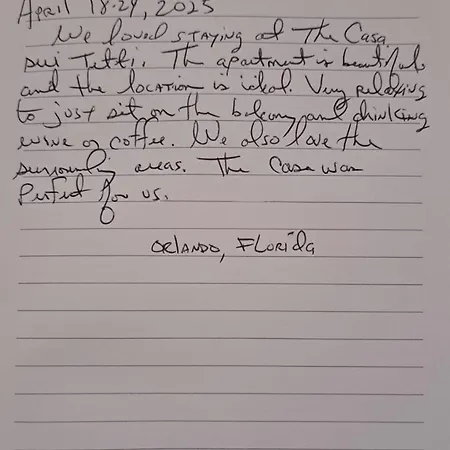 April 18-24, 2025
We loved staying at The Casa
sui Tetti. The apartment is beautiful
and the location is ideal. Very relaxing
to just sit on the balcony and drinking
wine or coffee. We also love the
surrounding areas. The Casa was
Perfect for us.
Orlando, Florida